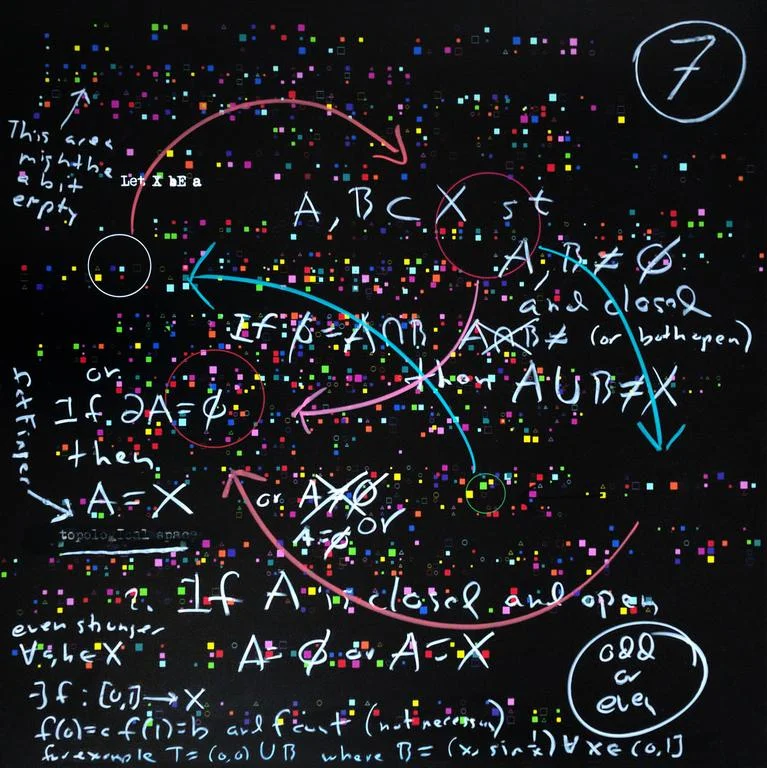 7
This area
might be
a bit
empty
Let X bE a
A, B ⊂ X st
A, B ≠ ∅
and closed
(or both open)
If ∅ = A ∩ B A∩B ≠
then A ∪ B ≠ X
or
If ∂A = ∅
then
A = X
or A≠∅
A=∅ or
topological space
2. If A is closed and open
A = ∅ or A = X
even stronger
∀ a, b ∈ X
∃ f : [0,1] → X
f(0)=a f(1)=b and f cont (not necessary)
for example T = (0,0) ∪ B where B = (x, sin 1/x) ∀ x ∈ (0,1]
odd
or
even